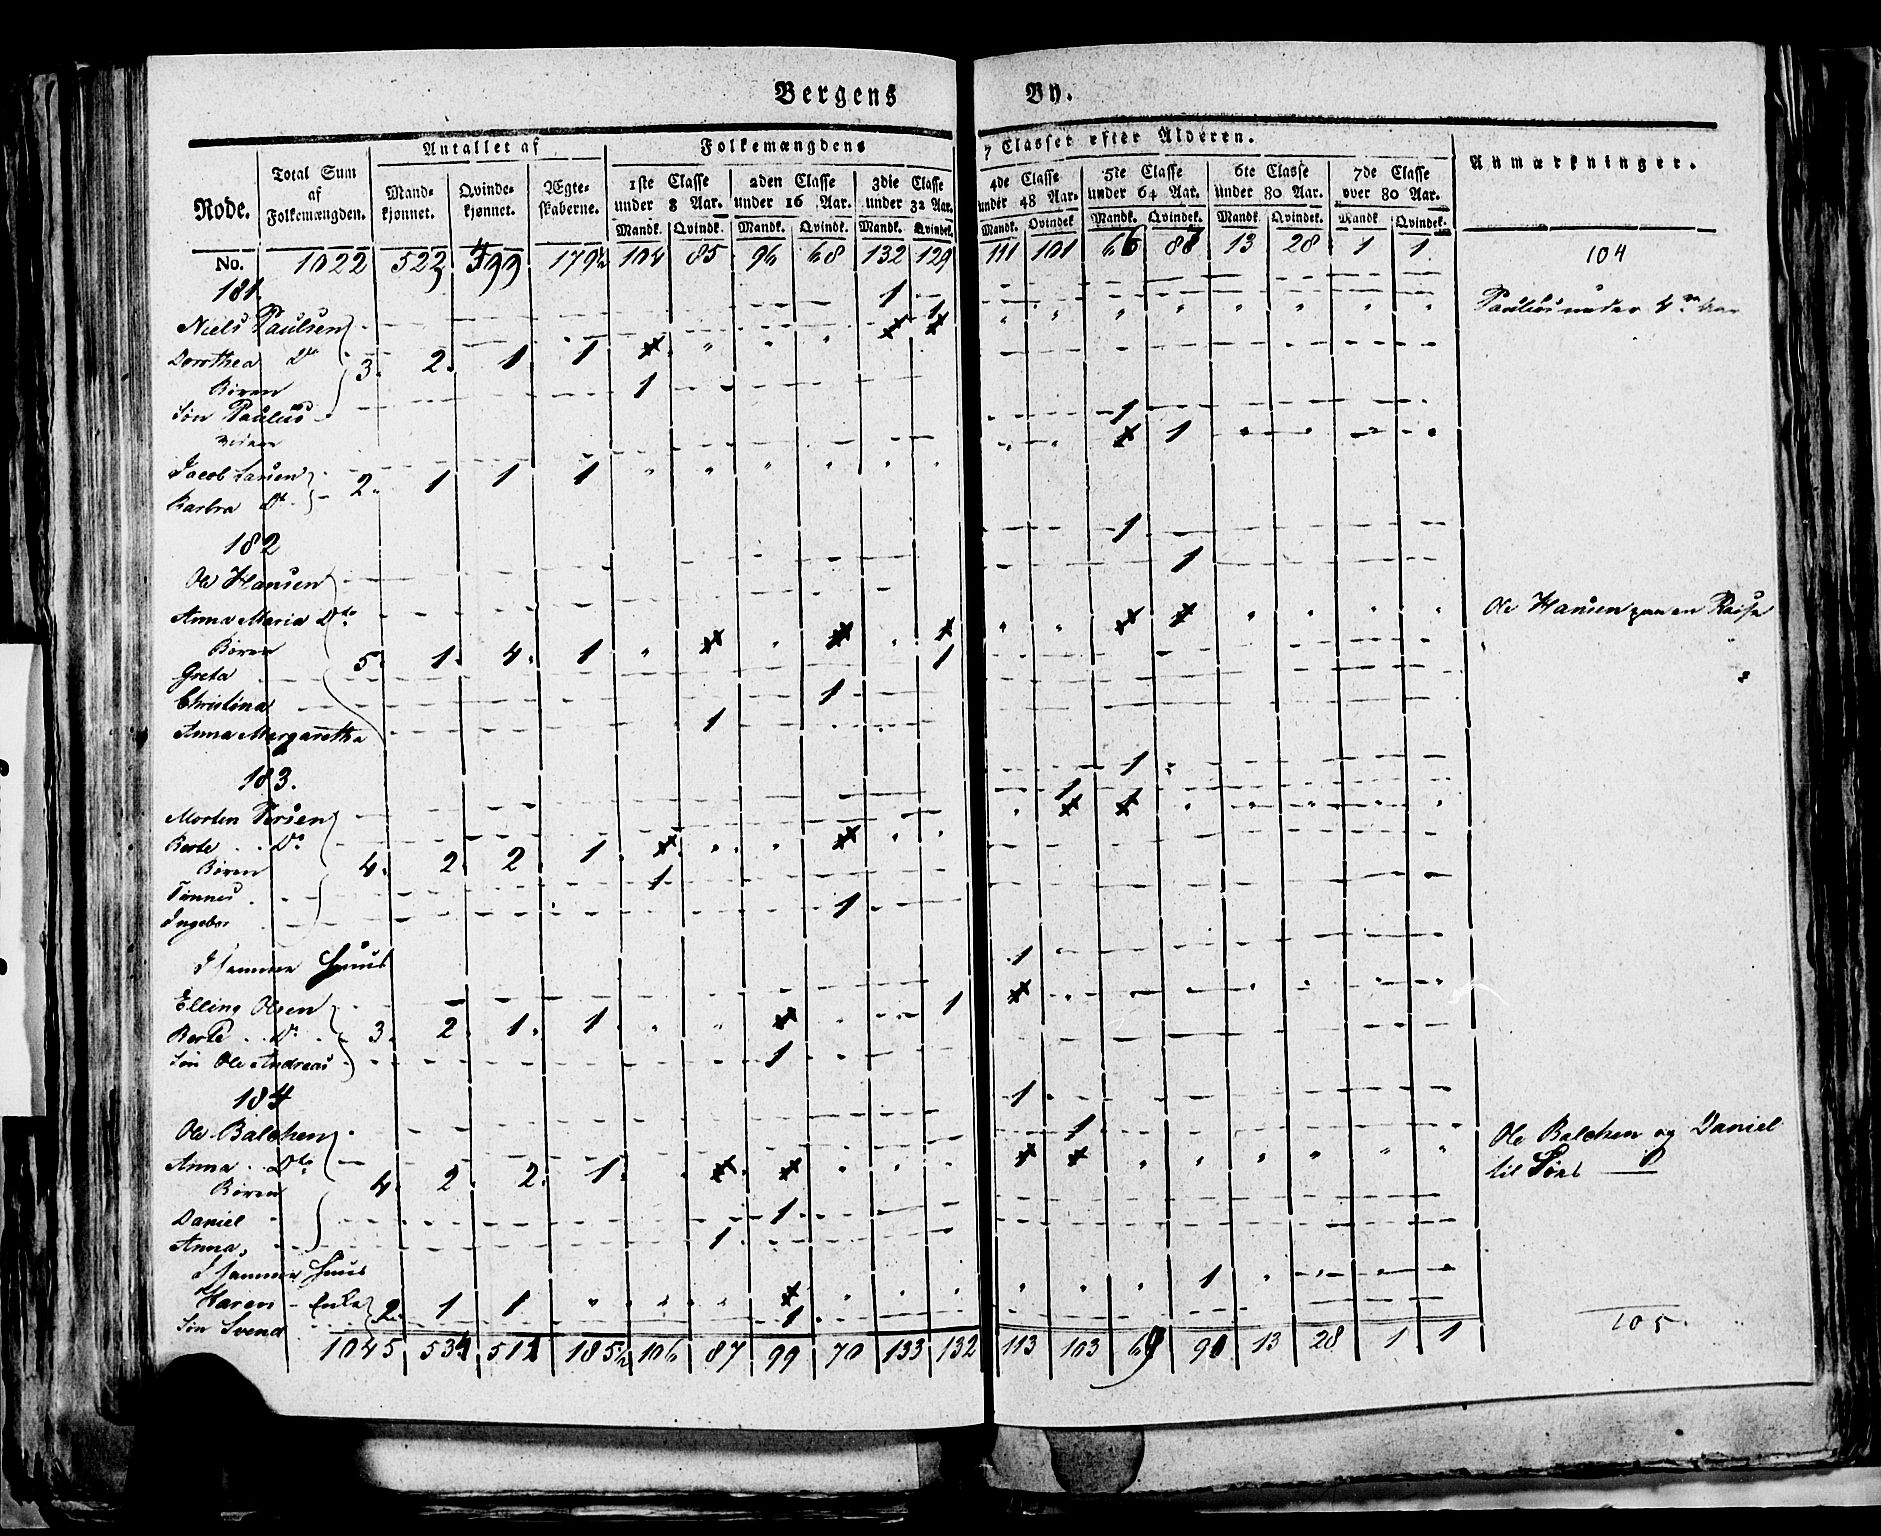 Bergens By.
Rode. Total Sum af Folkemængden. Antallet af Mandkjønnet. Qvindekjønnet. Ægteskaberne. Folkemængdens 7 Classer efter Alderen. Anmærkninger.
1ste Classe under 8 Aar. 2den Classe under 16 Aar. 3die Classe under 32 Aar. 4de Classe under 48 Aar. 5te Classe under 64 Aar. 6te Classe under 80 Aar. 7de Classe over 80 Aar.
Mandk. Qvindk. Mandk. Qvindk. Mandk. Qvindek. Mandk. Qvindek. Mandk. Qvindek. Mandk. Qvindek. Mandk. Qvindek.
No. 1022 522 499 179½ 104 85 96 68 132 129 111 101 66 87 13 28 1 1 104
181.
Niels Paulsen 1
Dorothea Do 3. 2. 1 1 1
Børen
Søn Paulus 1
Jacob Larsen 1
Barbra Do 2. 1 1 1 1
182
Ole Hansen 1 Ole Hansen paa en Reise
Anna Maria Dto 1
Børen 5. 1. 4. 1
Greta 1
Christina 1
Anna Margaretha 1
183.
Morten Persen 1
Berte Do 1
Børen 4. 2. 2. 1.
Tønnes 1
Ingebor 1
I samme Huus
Elling Olsen 1
Berte Do 3. 2. 1. 1 1
Søn Ole Andreas 1
184
Ole Balchen 1 Ole Balchen og Daniel
Anna Dto 1 til Søes
Børen 4. 2. 2. 1.
Daniel 1
Anna 1
I samme Huus
Karen Enke 2. 1 1 1
Søn Svend 1
1045 534 512 185½ 106 87 99 70 133 132 113 103 69 90 13 28 1 1 105.